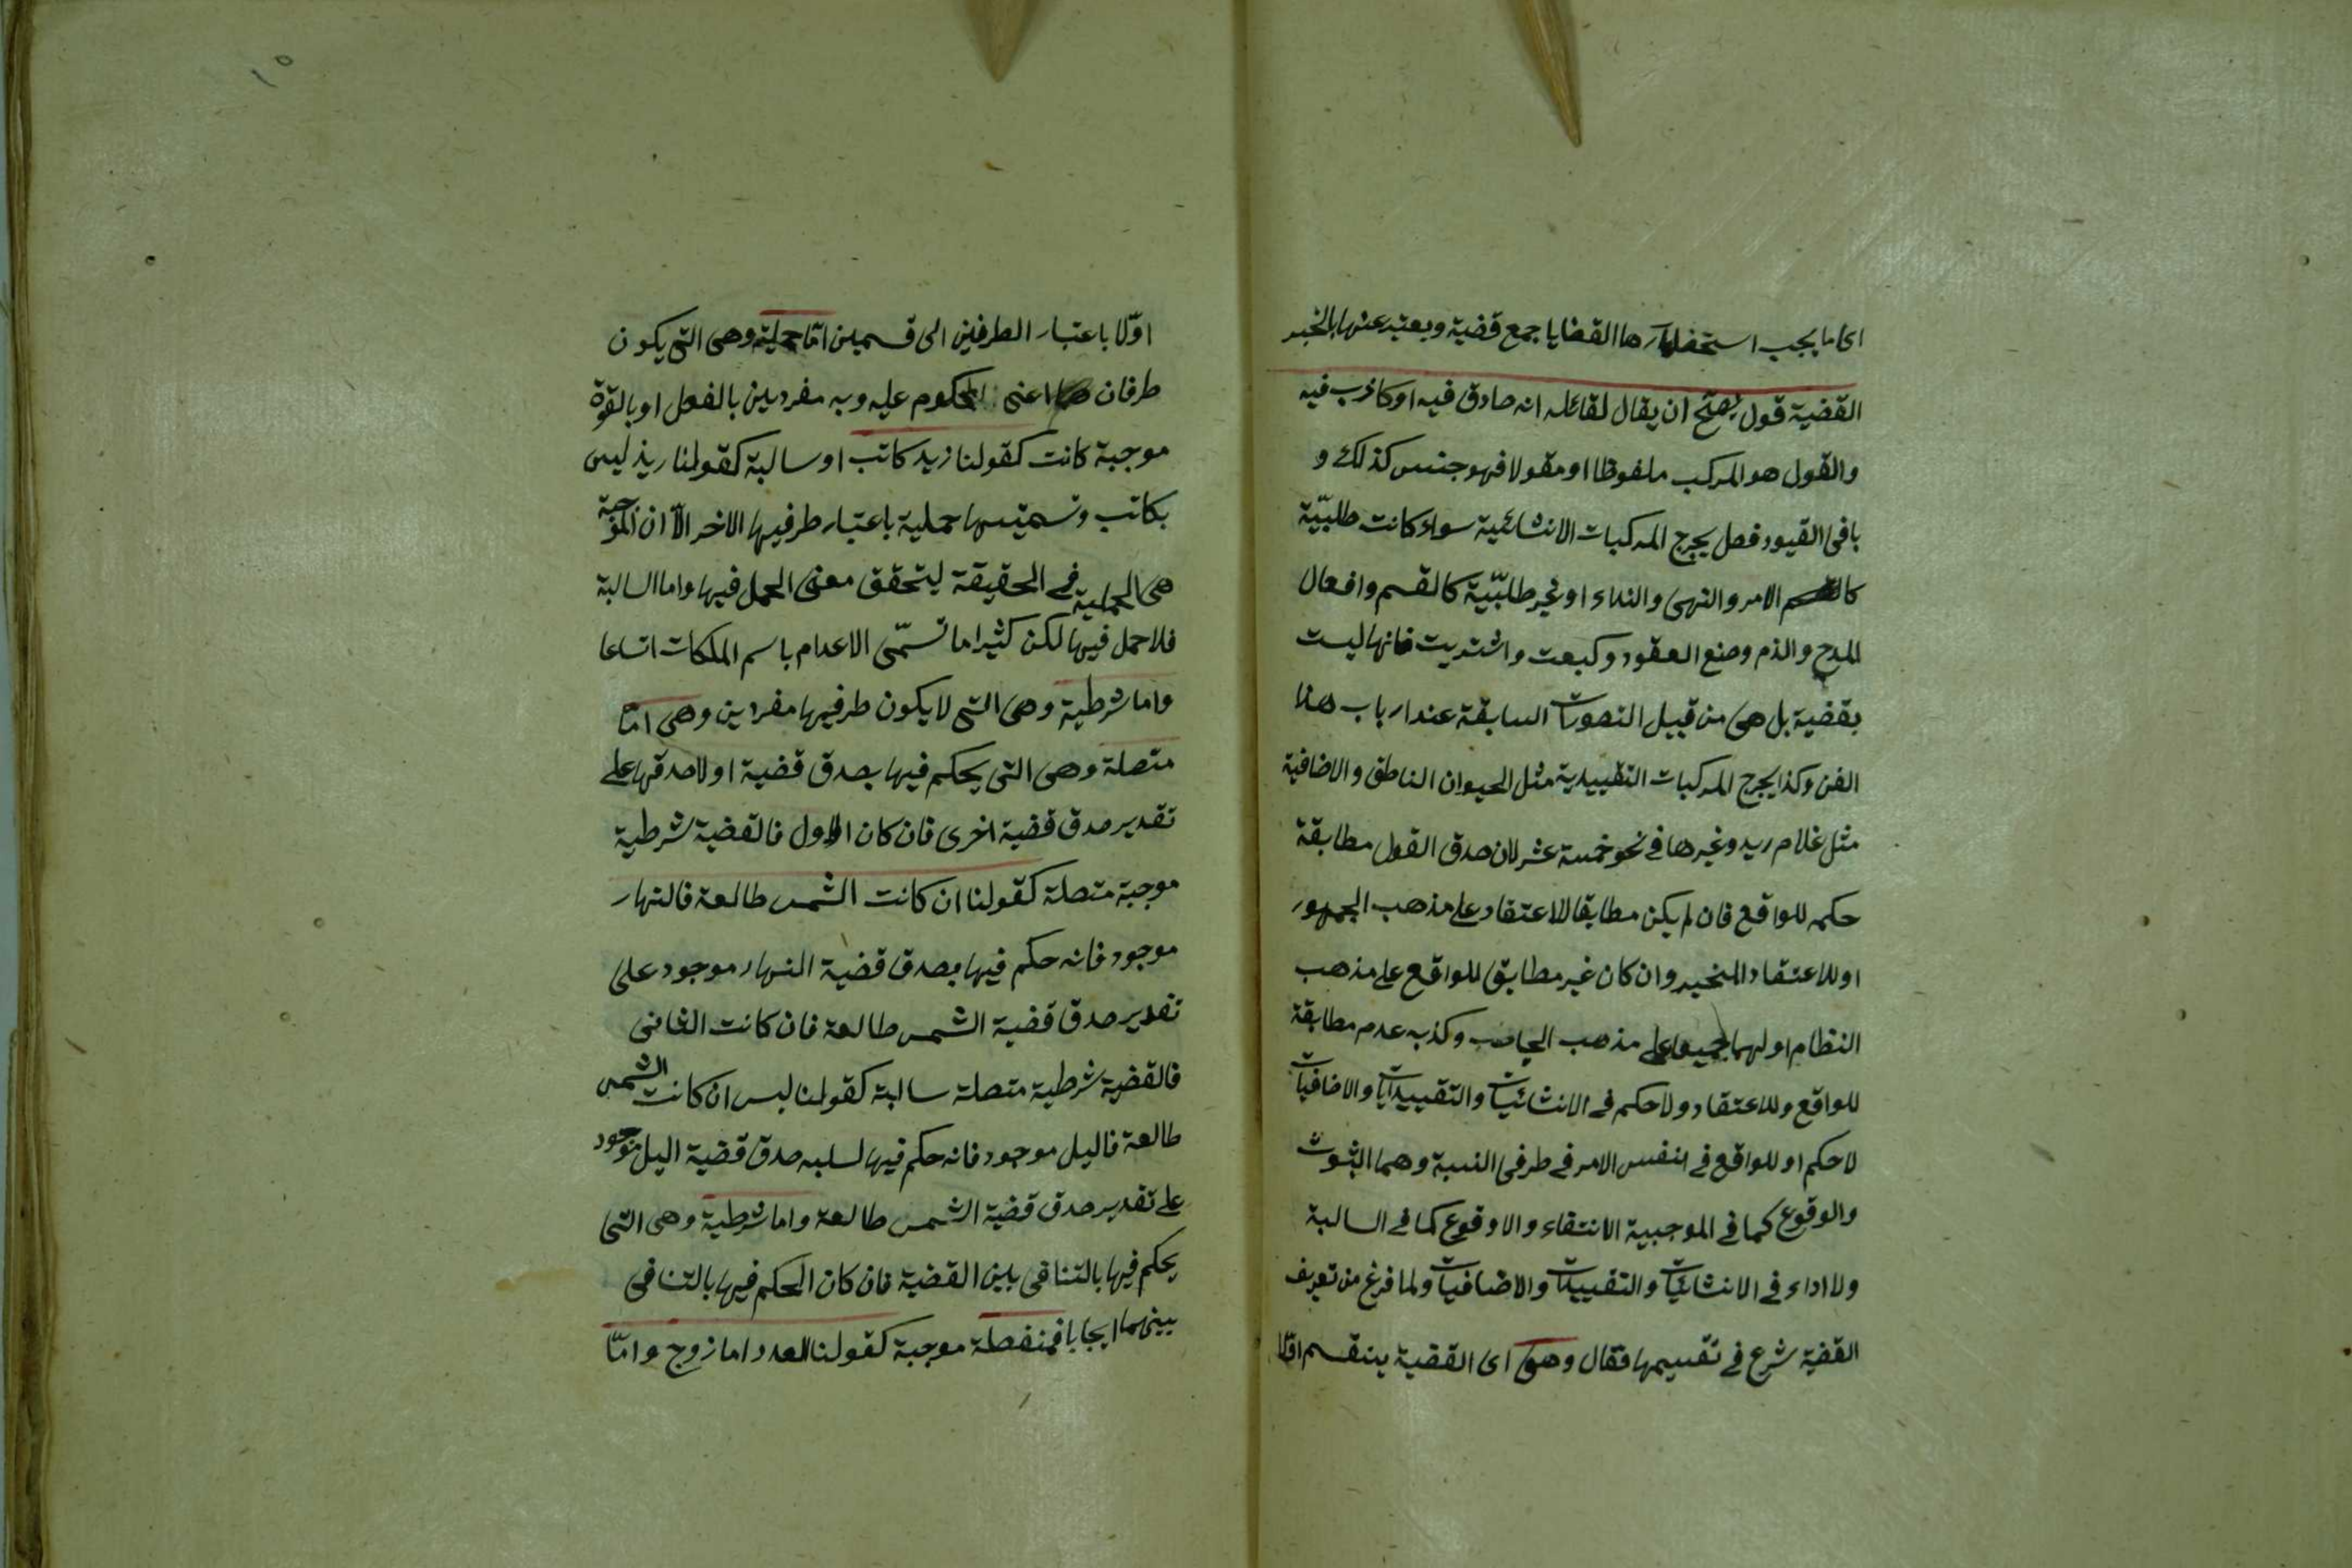 اى ما يجب استحضارها القضايا جمع قضية ويعتبر عنها بالخبر
القضية قول يصح ان يقال لقائله انه صادق فيه او كاذب فيه
والقول هو المركب ملفوظا او مقولا فهو جنس كذلك و
باقى القيود فصل يخرج المركبات الانشائية سواء كانت طلبيّة
كالامر والنهى والنداء او غير طلبيّة كالقسم وافعال
المدح والذم وصنع العقود وكبعت واشتريت فانها ليست
بقضية بل هى من قبيل التصورات السابقة عند ارباب هذا
الفن وكذا يخرج المركبات التقييدية مثل الحيوان الناطق والاضافية
مثل غلام زيد وغيرها فى نحو خمسة عشر لان صدق القول مطابقة
حكمه للواقع فان لم يكن مطابقا للاعتقاد على مذهب الجمهور
او للاعتقاد المخبر وان كان غير مطابق للواقع على مذهب
النظام او لهما جميعا على مذهب الجاحظ وكذبه عدم مطابقة
للواقع وللاعتقاد ولا حكم فى الانشائيات والتقييديات والاضافيات
لا حكم او للواقع فى نفس الامر فى طرفى النسبة وهما الثبوت
والوقوع كما فى الموجبية الانتقاء والاوقوع كما فى السالبة
ولا اداء فى الانشائيات والتقييدات والاضافيات ولما فرغ من تعريف
القضية شرع فى تقسيمها فقال وهى اى القضية ينقسم اوّلا
١٥
اوّلا باعتبار الطرفين الى قسمين امّا حملية وهى التى يكون
طرفان اعنى المحكوم عليه وبه مفردين بالفعل او بالقوة
موجبة كانت كقولنا زيد كاتب او سالبة كقولنا زيد ليس
بكاتب وتسميتها حملية باعتبار طرفيها الاخر الّا ان الموجبة
هى الحملية فى الحقيقة ليتحقق معنى الحمل فيها واما السالبة
فلا حمل فيها لكن كثيرا ما تسمّى الاعدام باسم الملكات اتساعا
واما شرطية وهى التى لا يكون طرفيها مفردين وهى امّا
متصلة وهى التى يحكم فيها بصدق قضية او لا صدقها على
تقدير صدق قضية اخرى فان كان الاول فالقضية شرطية
موجبة متصلة كقولنا ان كانت الشمس طالعة فالنهار
موجود فانه حكم فيها بصدق قضية النهار موجود على
تقدير صدق قضية الشمس طالعة فان كانت الثانى
فالقضية شرطية متصلة سالبة كقولنا ليس ان كانت الشمس
طالعة فاليل موجود فانه حكم فيها لسلبه صدق قضية اليل موجود
على تقدير صدق قضية الشمس طالعة واما شرطية وهى التى
يحكم فيها بالتنافى بين القضية فان كان الحكم فيها بالتنافى
بينهما ايجابا فمنفصلة موجبة كقولنا العدد اما زوج وامّا